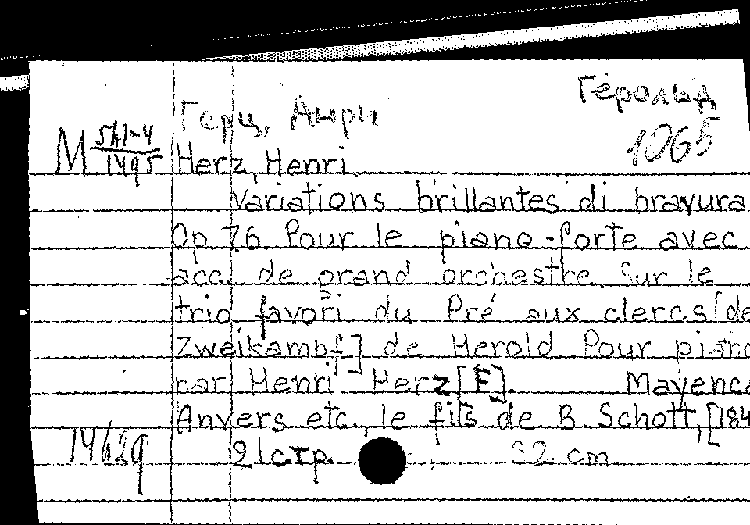 Герольд
Герц, Анри
1065
М 5А1-4/1495
Herz, Henri
Variations brillantes di bravura
Op 76 Pour le piano-forte avec
acc. de grand orchestre Sur le
trio favori du Pré aux clercs [de
Zweikampf] de Herold Pour piano
par Henri Herz [F]. Mayence
Anvers etc., le fils de B. Schott, [184
14629
21 стр. 32 cm